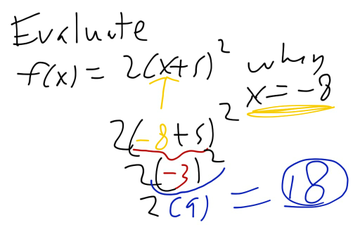 Evaluate
f(x) = 2(x+5)² when
x = -8
2(-8+5)²
2(-3)²
2(9) = 18